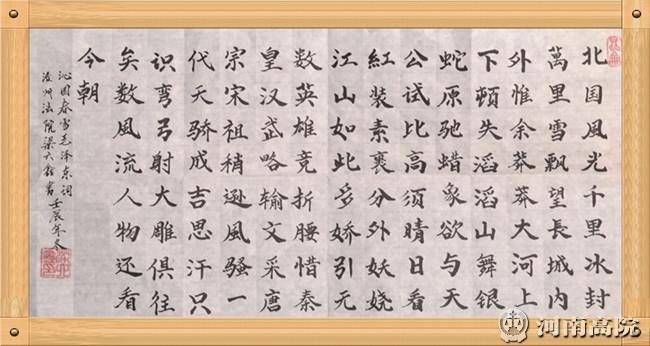 北国風光千里冰封
萬里雪飘望長城内
外惟余莽莽大河上
下頓失滔滔山舞银
蛇原驰蜡象欲与天
公試比高须晴日看
紅装素裹分外妖娆
江山如此多娇引无
数英雄竞折腰惜秦
皇汉武略输文采唐
宗宋祖稍逊風骚一
代天骄成吉思汗只
识弯弓射大雕俱往
矣数風流人物还看
今朝
沁园春雪毛泽东词
州法院梁六书壬辰年冬
河南高院